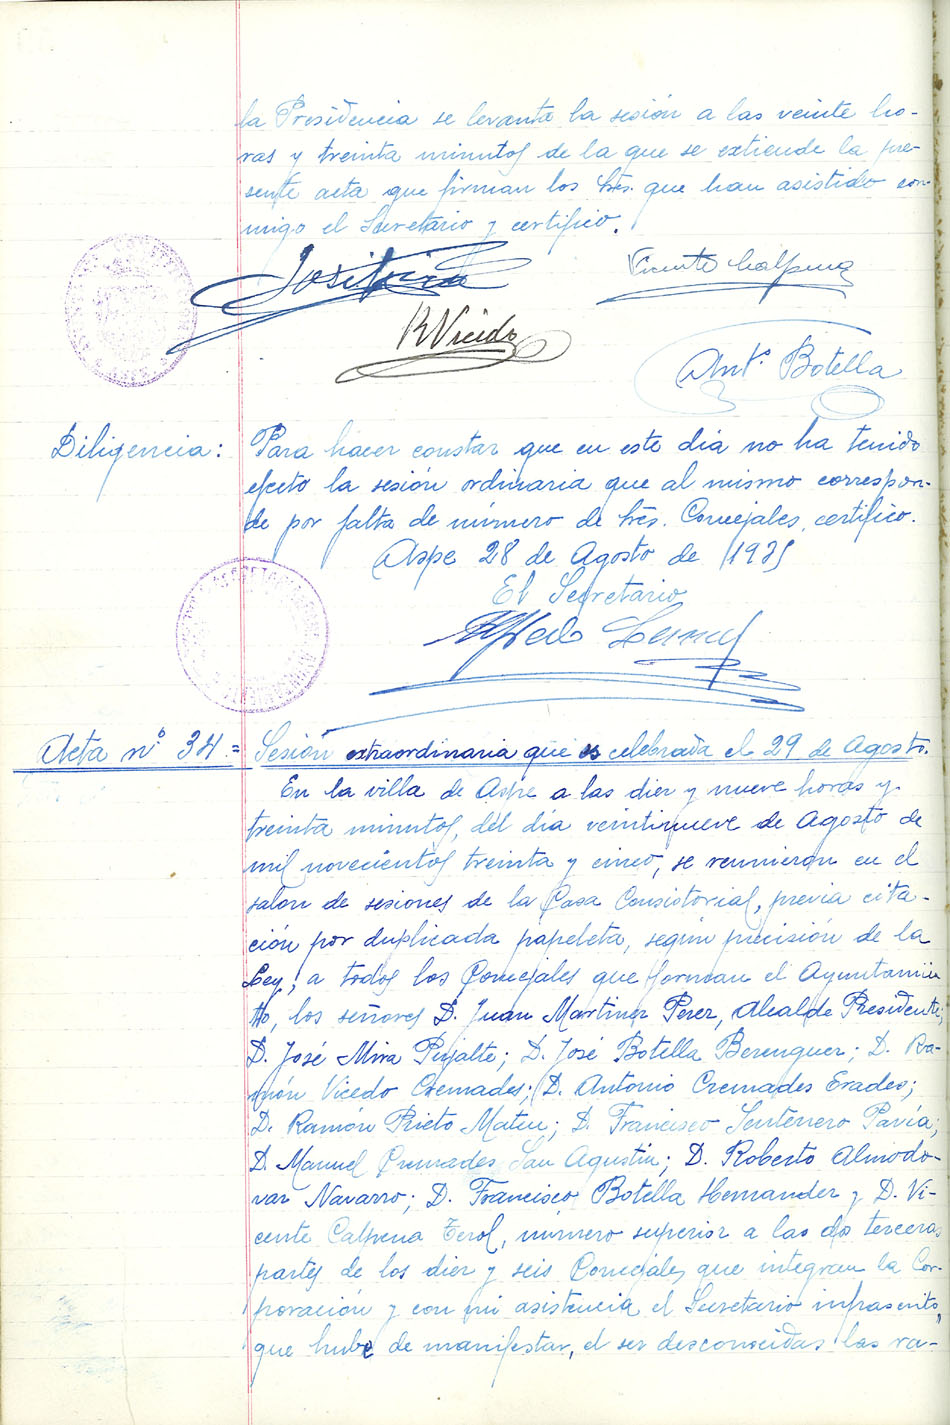 la Presidencia se levanta la sesión a las veinte ho-
ras y treinta minutos de la que se extiende la pre-
sente acta que firman los Sres. que han asistido con-
migo el Secretario y certifico.
Vicente Calpena
R Vicedo
Antº. Botella
Diligencia: Para hacer constar que en este día no ha tenido
efecto la sesión ordinaria que al mismo correspon-
de por falta de número de Sres. Concejales, certifico.
Aspe 28 de Agosto de 1935
El Secretario
Acta nº 34 = Sesión extraordinaria que es celebrada el 29 de Agosto.
En la villa de Aspe a las diez y nueve horas y
treinta minutos, del día veintinueve de Agosto de
mil novecientos treinta y cinco, se reunieron en el
salon de sesiones de la Casa Consistorial, previa cita-
ción por duplicada papeleta, según precisión de la
Ley, a todos los Concejales que forman el Ayuntamien
to, los señores D. Juan Martinez Perez, Alcalde Presidente;
D. José Mira Pujalte; D. José Botella Berenguer; D. Ra-
món Vicedo Cremades; D. Antonio Cremades Erades;
D. Ramón Prieto Mateu; D. Francisco Sentenero Pavía;
D. Manuel Cremades San Agustin; D. Roberto Almodo-
var Navarro; D. Francisco Botella Hernandez y D. Vi-
cente Calpena Terol, número superior a las dos terceras
partes de los diez y seis Concejales que integran la Cor-
poración y con mi asistencia el Secretario infrascrito,
que hube de manifestar, el ser desconocidas las ra-